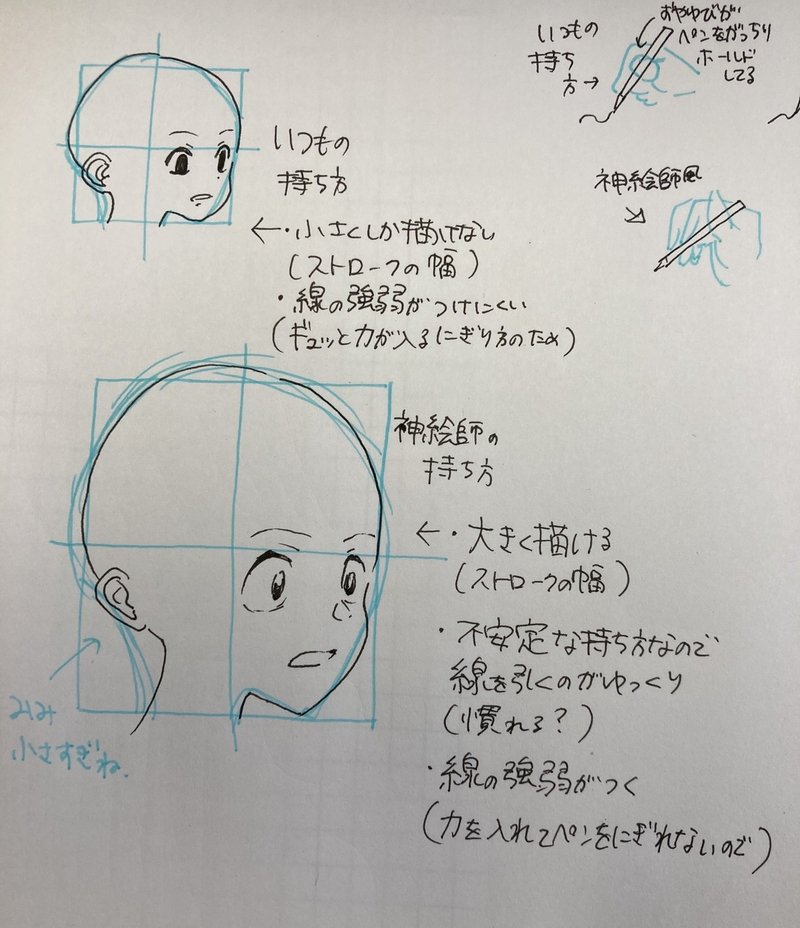 おやゆびが
ペンをがっちり
ホールド
してる
いつもの
持ち
方→
神絵師風
いつもの
持ち方
←・小さくしか描けない
(ストロークの幅)
・線の強弱がつけにくい
(ギュッと力が入るにぎり方のため)
神絵師の
持ち方
←・大きく描ける
(ストロークの幅)
・不安定な持ち方なので
線を引くのがゆっくり
(慣れる?)
・線の強弱がつく
(力を入れてペンをにぎれないので)
みみ
小さすぎね.